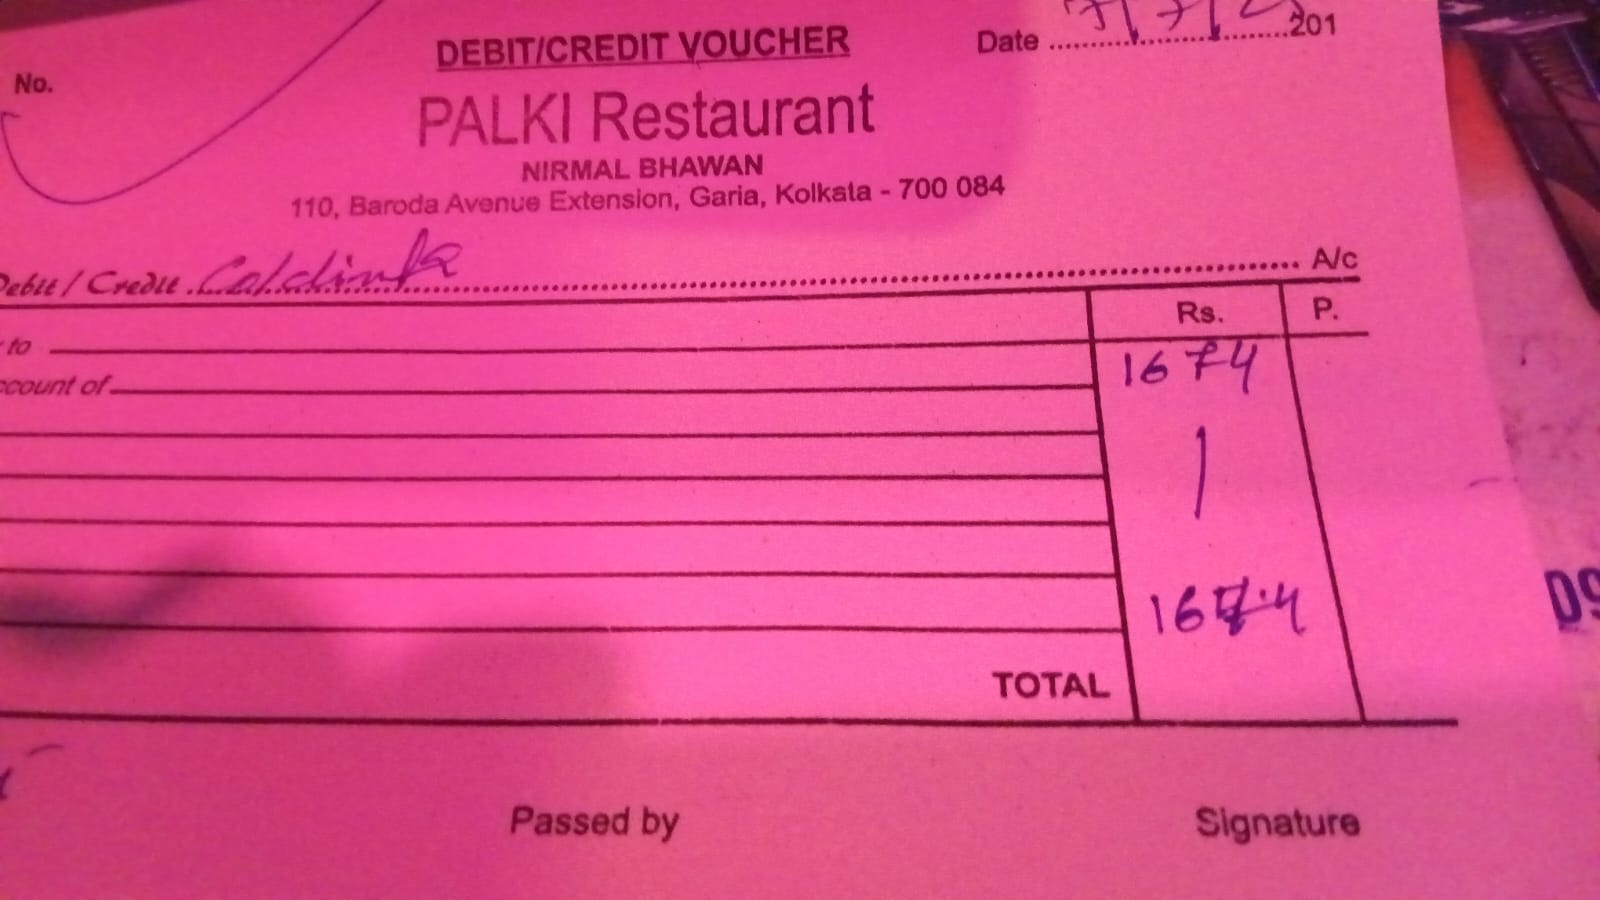 DEBIT/CREDIT VOUCHER
No.
Date 7/7/2 201
PALKI Restaurant
NIRMAL BHAWAN
110, Baroda Avenue Extension, Garia, Kolkata - 700 084
Debit / Credit Coldink A/c
Rs. P.
to
1674
ccount of
1674
TOTAL
Passed by Signature